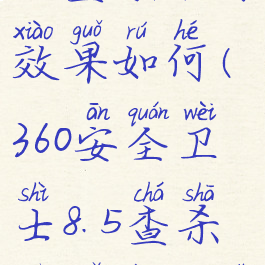 xiào guǒ rú hé
效果如何(
ān quán wèi
360安全卫
shì chá shā
士8.5查杀